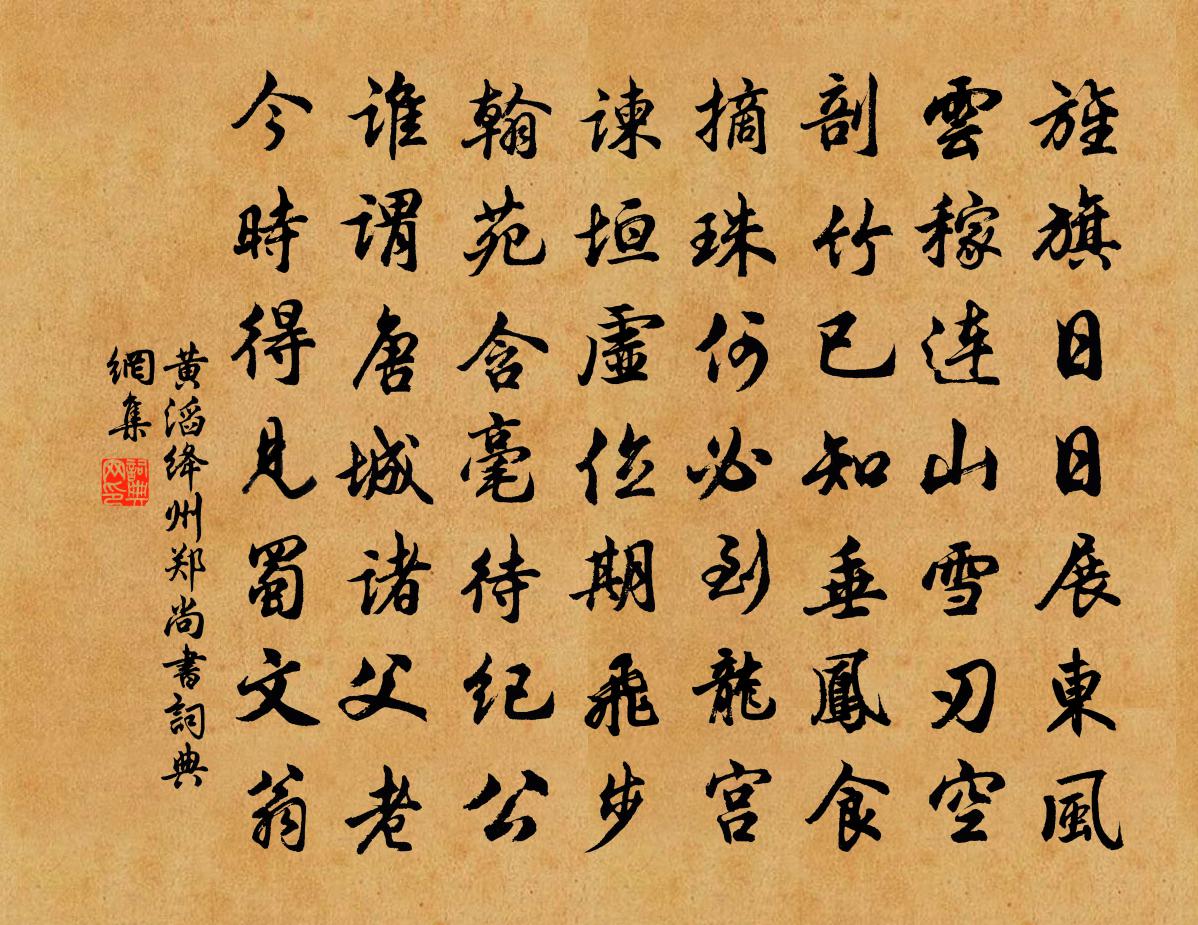 旌旗日日展東風
雲稼連山雪刃空
剖竹已知垂鳳食
摘珠何必到龍宮
諫垣虛位期飛步
翰苑含毫待紀公
誰謂唐城諸父老
今時得見蜀文翁
黄滔绛州郑尚書詞典
網集
詞典
网印